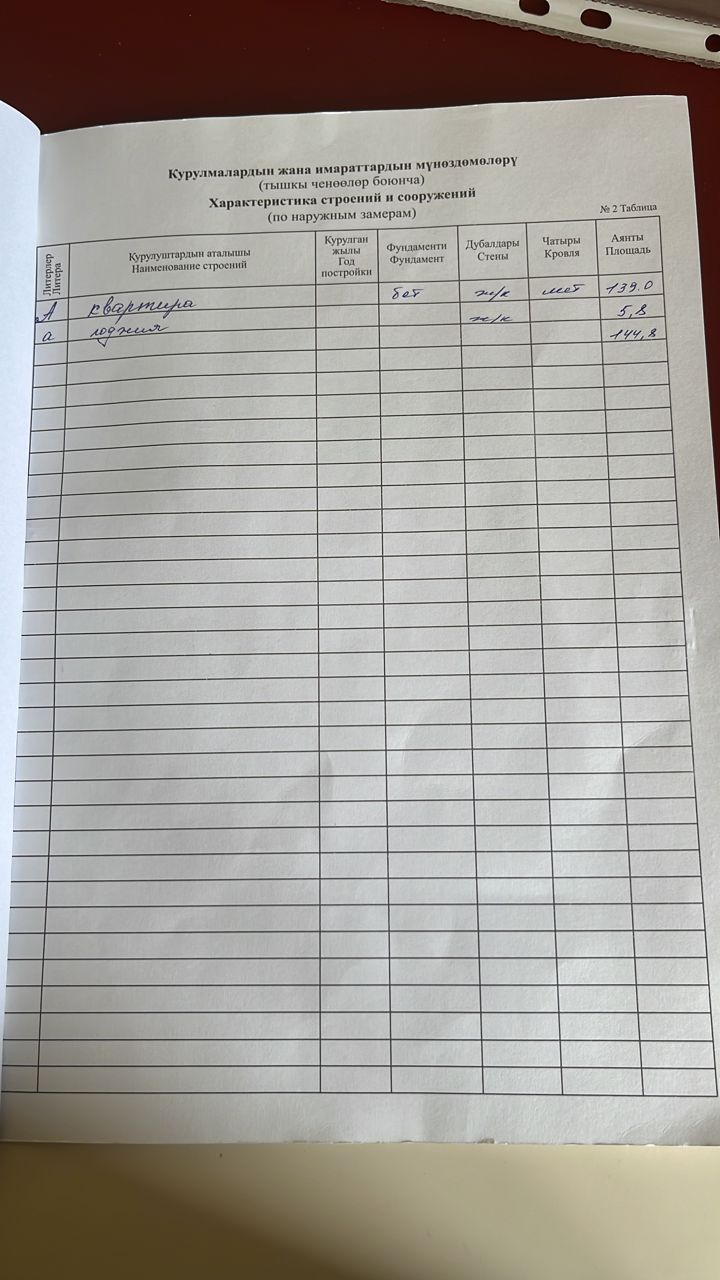 Курулмалардын жана имараттардын мүнөздөмөлөрү
(тышкы ченөөлөр боюнча)
Характеристика строений и сооружений
(по наружным замерам)
№ 2 Таблица
Литерлер Литера
Курулуштардын аталышы Наименование строений
Курулган жылы Год постройки
Фундаменти Фундамент
Дубалдары Стены
Чатыры Кровля
Аянты Площадь
А квартира бет ж/к мет 139.0
а лоджия ж/к 5,8
144,8